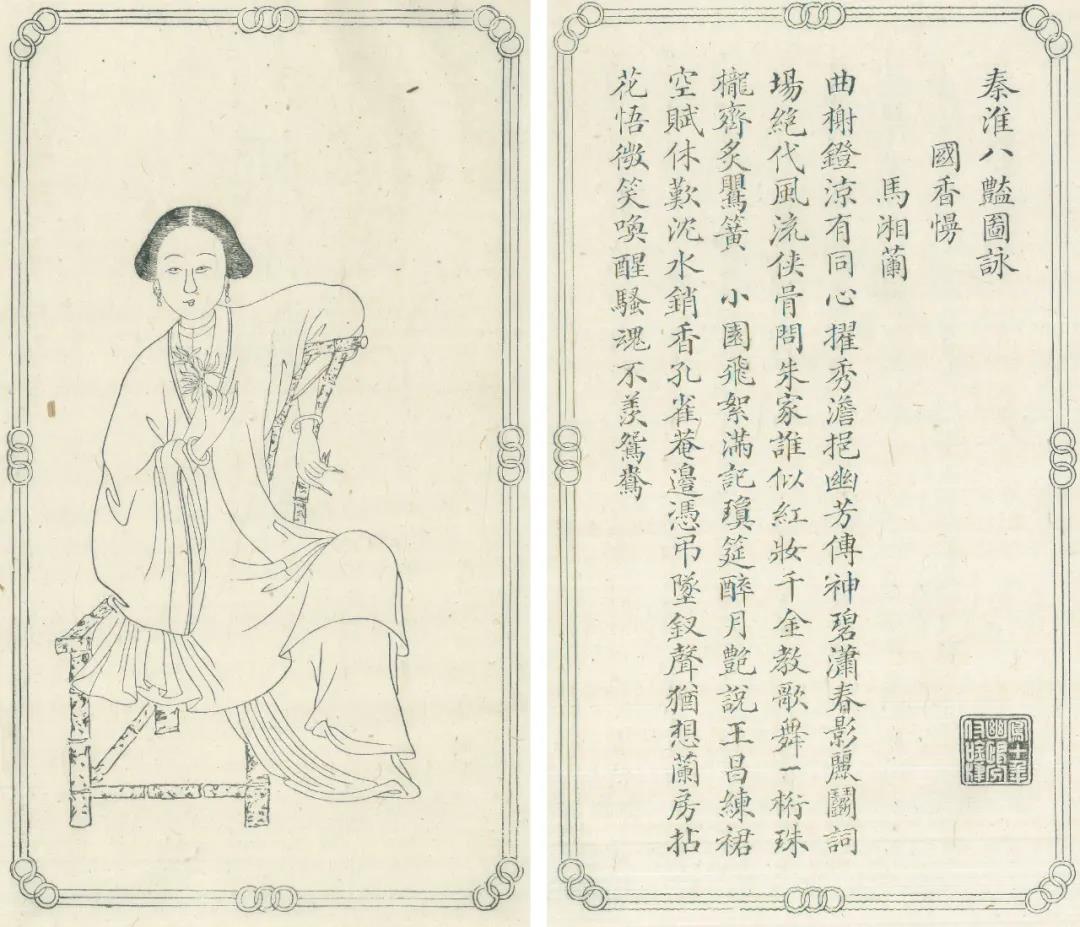 秦淮八豔圖詠
國香慢
馬湘蘭
曲榭鐙涼有同心擢秀澹挹幽芳傳神碧瀟春影麗鬭詞
場絕代風流俠骨問朱家誰似紅妝千金教歌舞一桁珠
櫳齊炙鸎簧　小園飛絮滿記瓊筵醉月艷說王昌練裙
空賦休歎沈水銷香孔雀菴邊憑弔墜釵聲猶想蘭房拈
花悟微笑喚醒騷魂不羨鴛鴦